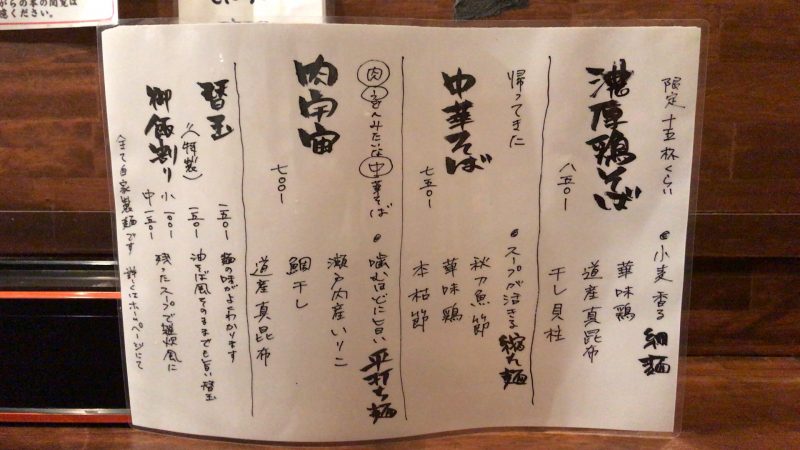 限定十五杯くらい
濃厚鶏そば
八五〇-
小麦香る 細麺
華味鶏
道産真昆布
干し貝柱
帰ってきた
中華そば
七五〇-
スープが活きる 縮れ麺
秋刀魚節
華味鶏
本枯節
肉うどんみたいな中華そば
肉宇宙
七〇〇-
噛むほどに旨い 平打ち麺
瀬戸内産いりこ
鯛干し
道産真昆布
替玉
一五〇- 麺の味がよくわかります
(特製)
一五〇- 油そば風そのままでも旨い替玉
御飯割り
小 一〇〇- 残ったスープで雑炊風に
中 一五〇-
全て自家製麺です 詳しくはホームページにて